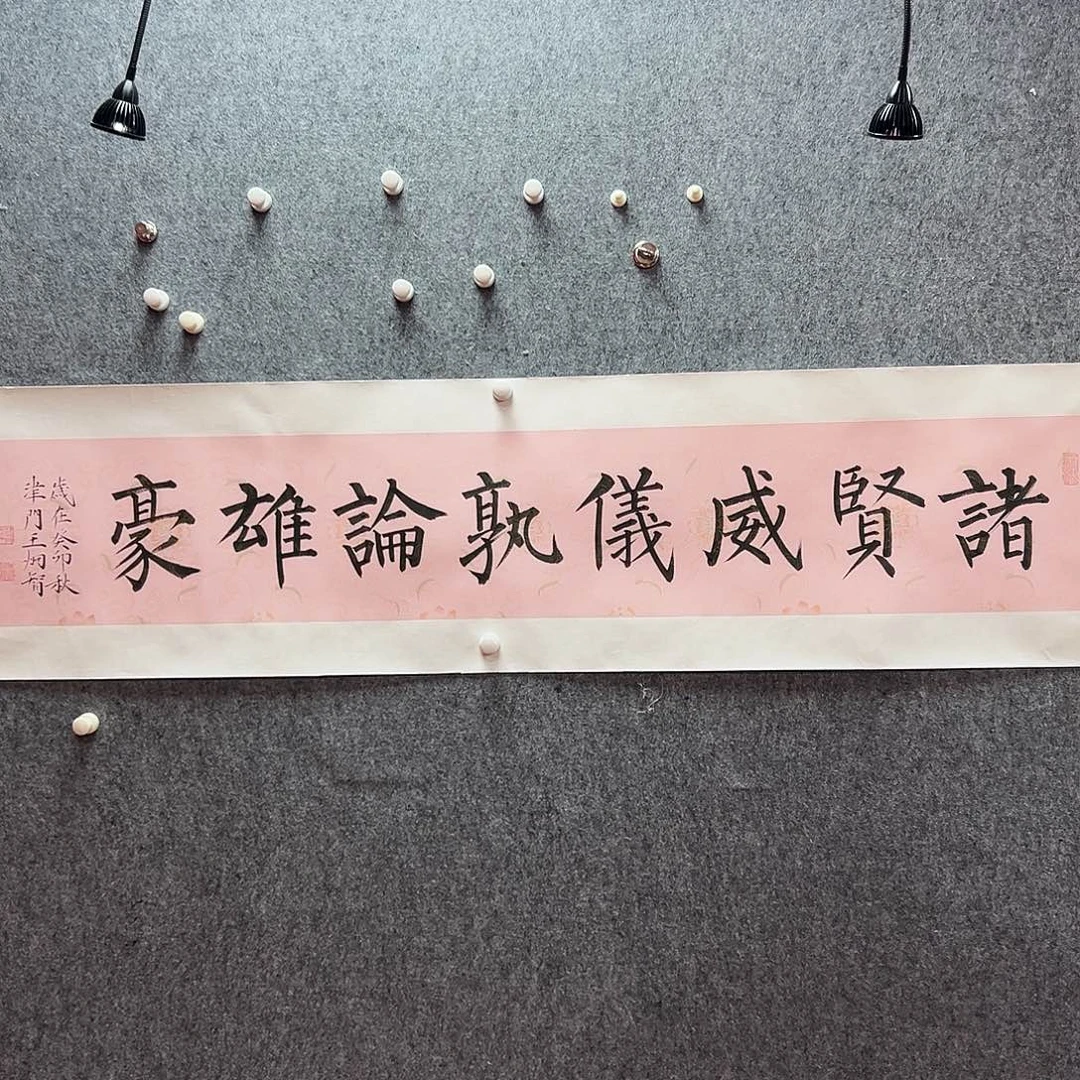 諸賢威儀孰論雄豪
歲在癸卯秋
津門王炳智